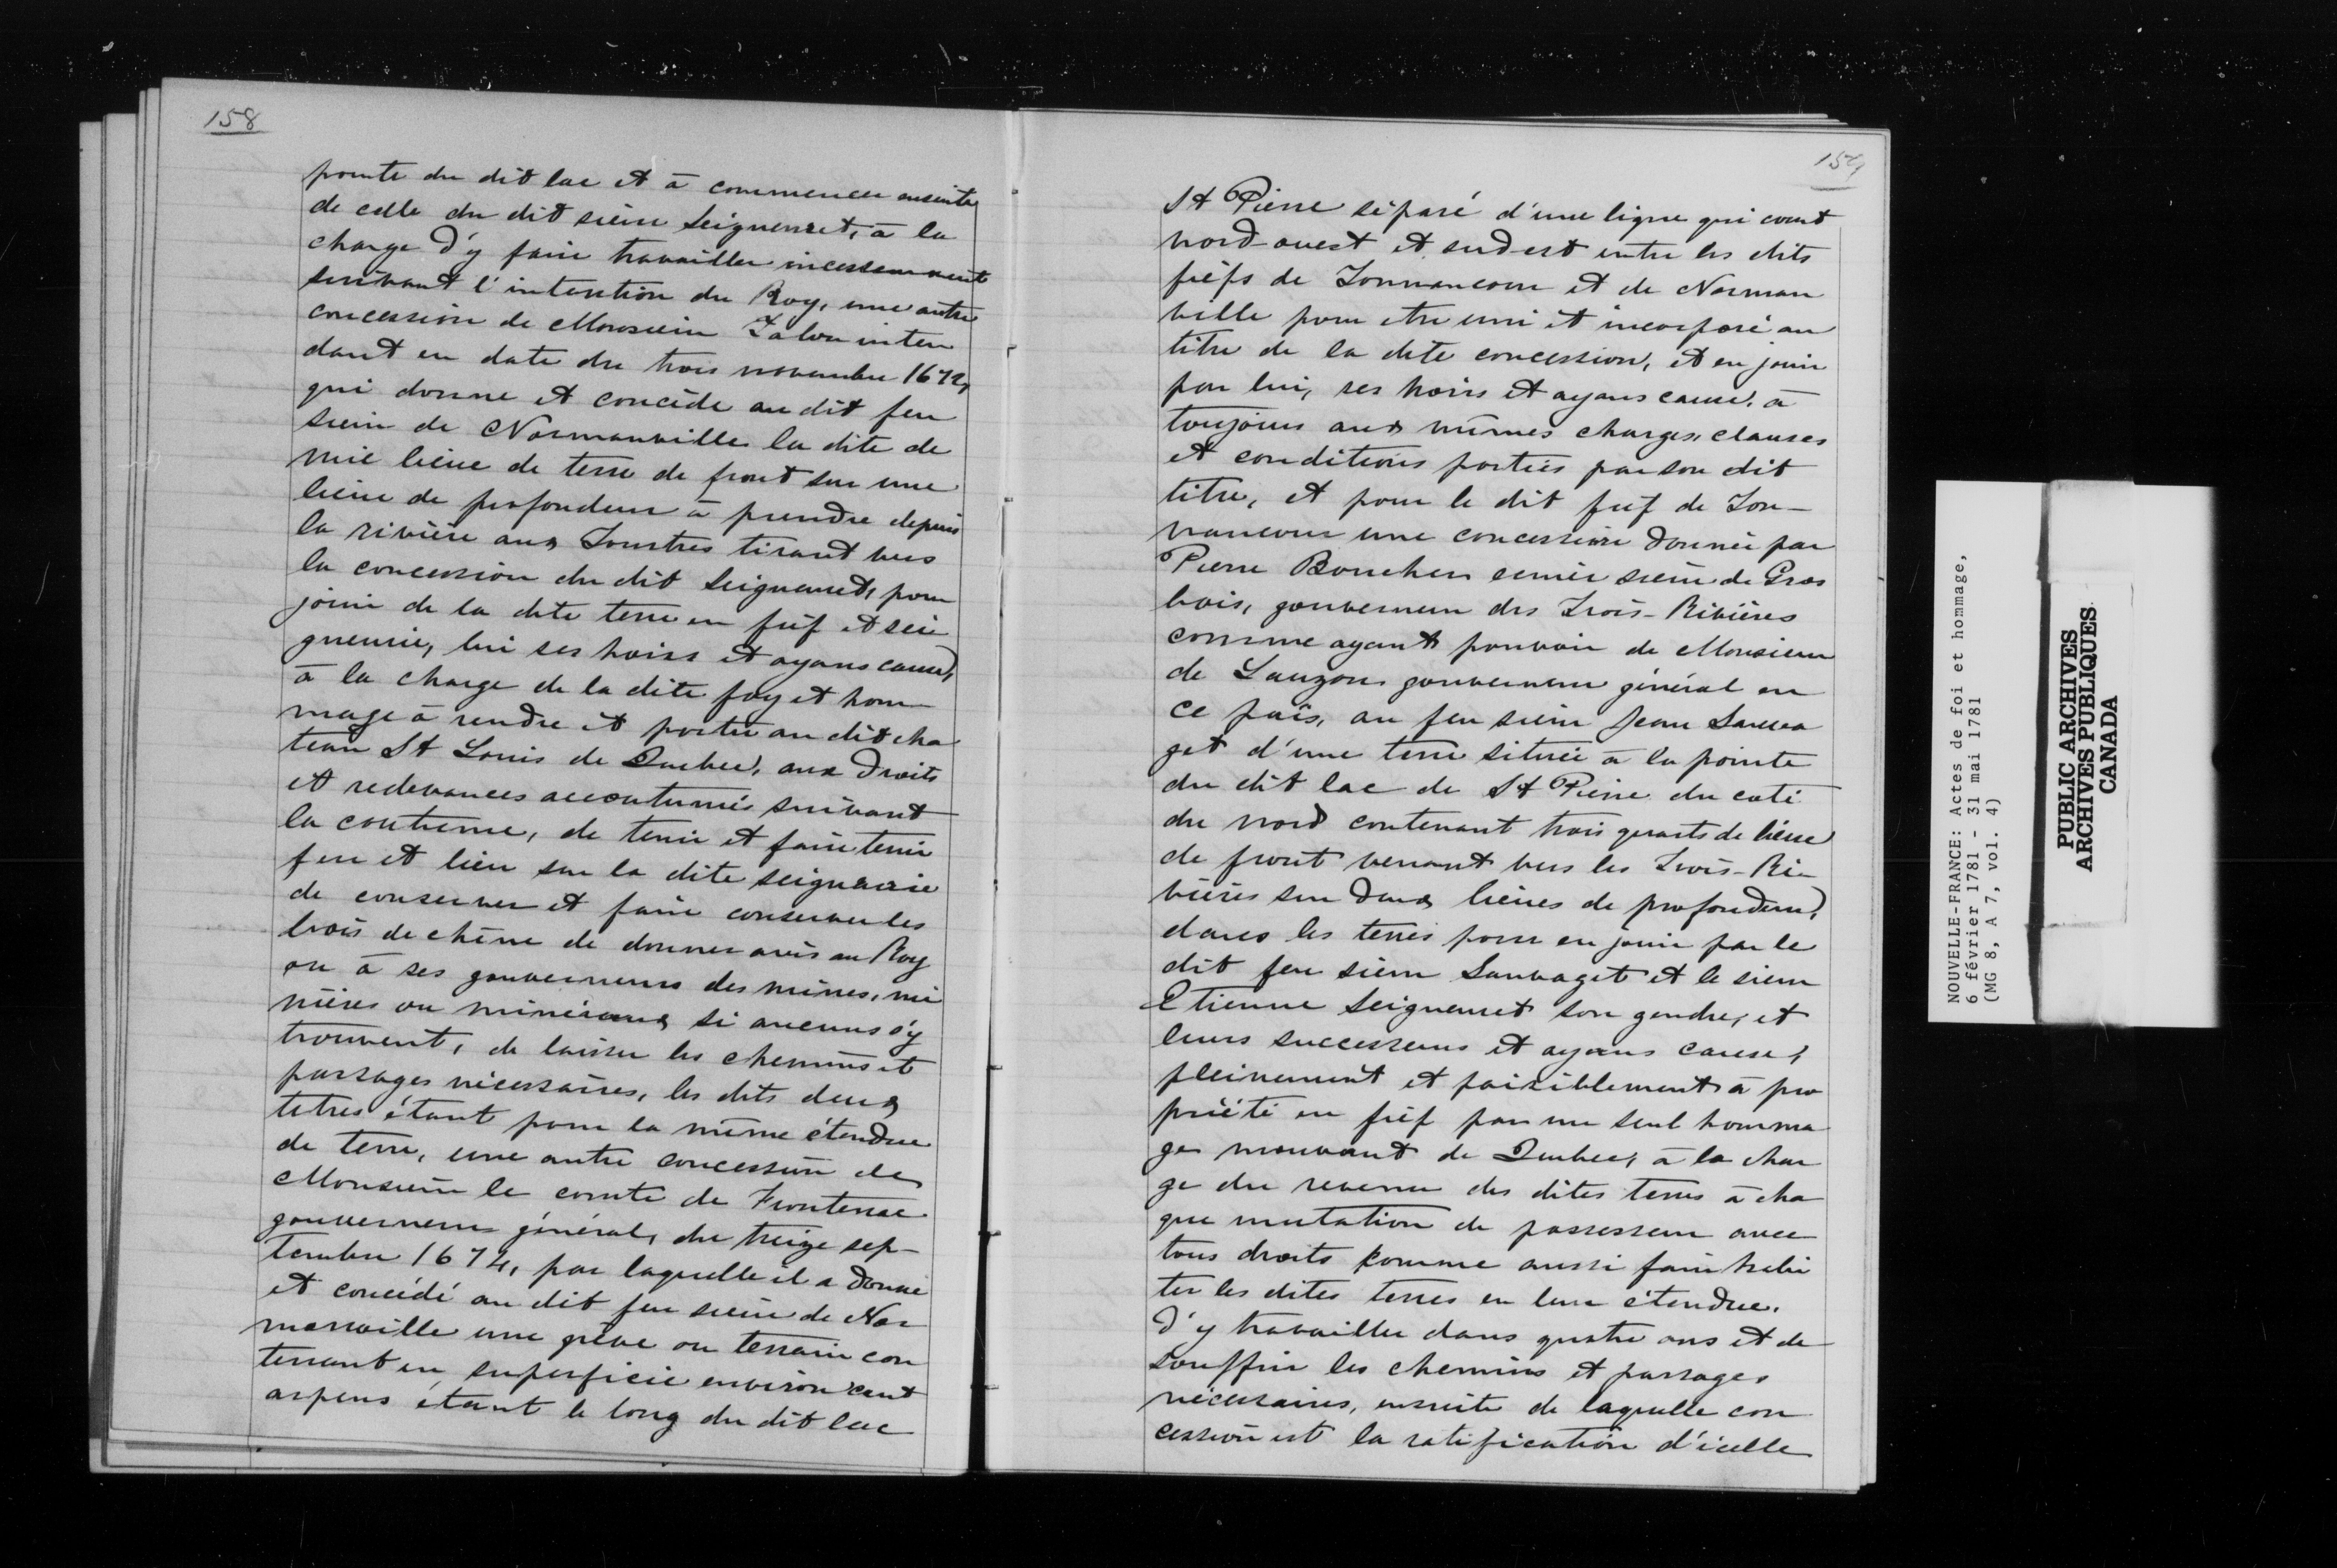 158
pointe du dit lac et à commencer ensuite
de celle du dit sieur Seigneuret, à la
charge d'y faire travailler incessamment
suivant l'intention du Roy, une autre
concession de Monsieur Talon inten
dant en date du trois novembre 1672,
qui donne et concède au dit feu
sieur de Normanville la dite de
mie lieue de terre de front sur une
lieue de profondeur à prendre depuis
la rivière aux Loutres tirant vers
la concession du dit Seigneuret, pour
jouir de la dite terre en fief et sei
gneurie, lui ses hoirs et ayans cause,
à la charge de la dite foy et hom
mage à rendre et porter au dit cha
teau St Louis de Quebec, aux droits
et redevances accoutumés suivant
la coutume, de tenir et faire tenir
feu et lieu sur la dite seigneurie
de conserver et faire conserver les
bois de chêne de donner avis au Roy
ou à ses gouverneurs des mines, mi
nières ou minéraux si aucuns s'y
trouvent, de laisser les chemins et
passages nécessaires, les dits deux
titres étant pour la même étendue
de terre, une autre concession de
Monsieur le comte de Frontenac
gouverneur général, du treize sep-
tembre 1674, par laquelle il a donné
et concédé au dit feu sieur de Nor
manville une grève ou terrain con
tenant en superficie environ cent
arpens étant le long du dit lac
159
St Pierre séparé d'une ligne qui court
nord-ouest et sud-est entre les dits
fiefs de Tonnancour et de Norman
ville pour etre uni et incorporé au
titre de la dite concession, et en jouir
par lui, ses hoirs et ayans cause, à
toujours aux mêmes charges, clauses
et conditions portées par son dit
titre, et pour le dit fief de Ton-
nancour une concession donnée par
Pierre Boucher ecuier sieur de Gros
bois, gouverneur des Trois-Rivières
comme ayant pouvoir de Monsieur
de Lauzon gouverneur général en
ce païs, au feu sieur Jean Sauva
get d'une terre située à la pointe
du dit lac de St Pierre du coté
du nord contenant trois quarts de lieue
de front venant vers les Trois-Ri-
vières sur deux lieues de profondeur,
dans les terres pour en jouir par le
dit feu sieur Sauvaget et le sieur
Etienne Seigneuret son gendre, et
leurs successeurs et ayans cause,
pleinement et paisiblement à pro
priété en fief par un seul homma
ge mouvant de Quebec, à la char
ge du revenu des dites terres à cha
que mutation de possesseur avec
tous droits comme aussi faire habi
ter les dites terres en leur étendue.
D'y travailler dans quatre ans et de
souffrir les chemins et passages
nécessaires, ensuite de laquelle con
cession est la ratification d'icelle
NOUVELLE-FRANCE: Actes de foi et hommage,
6 février 1781 - 31 mai 1781
(MG 8, A 7, vol. 4)
PUBLIC ARCHIVES
ARCHIVES PUBLIQUES
CANADA